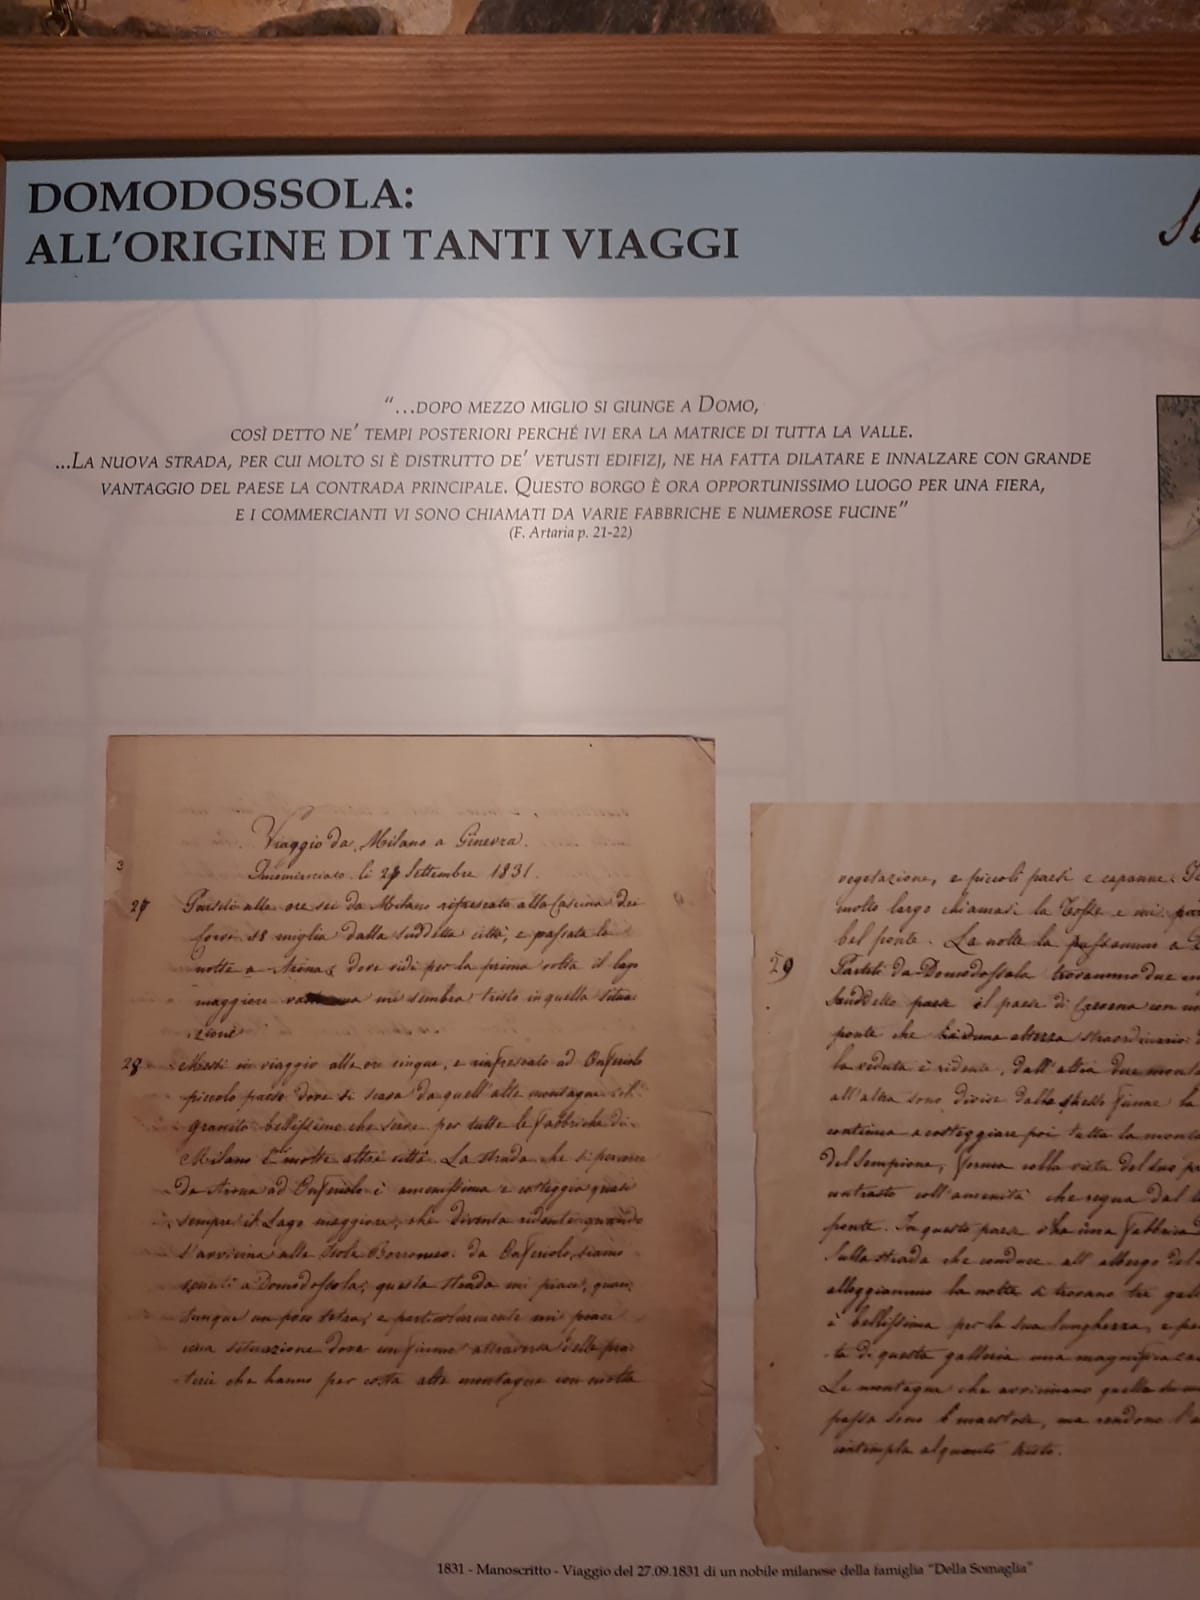 DOMODOSSOLA:
ALL'ORIGINE DI TANTI VIAGGI
"...DOPO MEZZO MIGLIO SI GIUNGE A DOMO,
COSÌ DETTO NE' TEMPI POSTERIORI PERCHÉ IVI ERA LA MATRICE DI TUTTA LA VALLE.
...LA NUOVA STRADA, PER CUI MOLTO SI È DISTRUTTO DE' VETUSTI EDIFIZJ, NE HA FATTA DILATARE E INNALZARE CON GRANDE
VANTAGGIO DEL PAESE LA CONTRADA PRINCIPALE. QUESTO BORGO È ORA OPPORTUNISSIMO LUOGO PER UNA FIERA,
E I COMMERCIANTI VI SONO CHIAMATI DA VARIE FABBRICHE E NUMEROSE FUCINE"
(F. Artaria p. 21-22)
Viaggio da Milano a Ginevra.
3
li 27 Settembre 1831.
27 alle ore sei da Milano rifrescato alla Cascina dei
Corvi 18 miglia dalla suddetta città, e passata la
notte a Arona, dove vidi per la prima volta il lago
maggiore mi sembra tristo in quella situa
zione
28 Messi in viaggio alle ore cinque, e rinfrescato ad Onferiolo
piccolo paese dove si scava da quell'alte montagne il
granito bellissimo che serve per tutte le fabbriche di
Milano e molte altre città. La strada che si percorre
da Arona ad Onferiolo è amenissima e costeggia quasi
sempre il Lago maggiore, che diventa ridente quando
s'avvicina alle Isole Borromeo. da Onferiolo, siamo
venuti a Domodossola; questa strada mi piace, quan
tunque un poco tetra, e particolarmente mi piace
una situazione dove un fiume attraversa delle pra
terie che hanno per costa alte montagne con molta
vegetazione, e piccoli paesi e capanne.
molto largo chiamasi la Toffe e vi
bel ponte. La notte la passammo a
29 Partiti da Domodossola trovammo due
suddetto paese il paese di con un
ponte che ha una altezza straordinaria
la veduta è ridente, dall'altra due
all'altra sono divise dallo stesso fiume la
continua a costeggiare poi tutta la
del Sempione, forma colla vista del suo
contrasto coll'amenità che regna dal
ponte. In questo paese v'ha una fabbrica
Sulla strada che conduce all'albergo del
alloggiammo la notte si trovano tre
è bellissima per la sua lunghezza, e
ta di questa galleria una magnifica
Le montagne che avvicinano quella
passa sono maestose, ma rendono
contempla alquanto tristo.
1831 - Manoscritto - Viaggio del 27.09.1831 di un nobile milanese della famiglia "Della Somaglia"